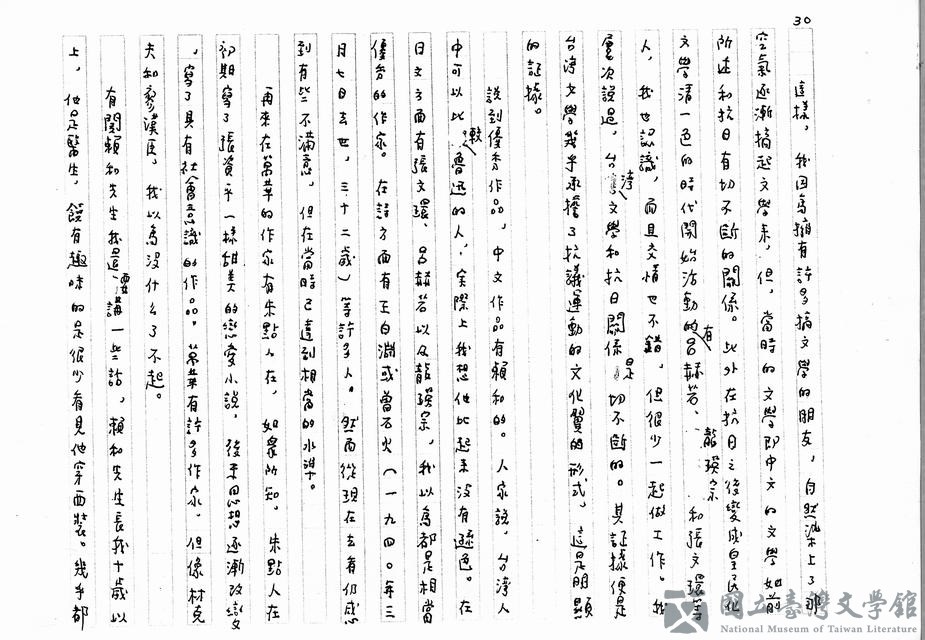 30
這樣，我因為擁有許多搞文學的朋友，自然染上了那
空氣逐漸搞起文學來，但，當時的文學即中文的文學如前
所述和抗日有切不斷的關係。此外在抗日之後變成皇民化
文學清一色的時代開始活動的有呂赫若、龍瑛宗和張文環等
人，我也認識，而且交情也不錯，但很少一起做工作。我
屢次說過，台灣文學和抗日關係是切不斷的。其証據便是
台灣文學幾乎承擔了抗議運動的文化翼的形式，這是明顯
的証據。
說到優秀作品，中文作品有賴和的。人家說，台灣人
中可以比較魯迅的人，實際上我想他比起來沒有遜色。在
日文方面有張文環、呂赫若以及龍瑛宗，我以為都是相當
優秀的作家。在詩方面有王白淵或曾石火（一九四〇年三
月七日去世，三十二歲）等許多人。然而從現在去看仍感
到有些不滿意，但在當時已達到相當的水準。
再來在萬華的作家有朱點人在，如眾所知，朱點人在
初期寫了張資平一樣甜美的戀愛小說，後來思想逐漸改變
，寫了具有社會意識的作品。萬華有許多作家，但像林克
夫和廖漢臣，我以為沒什么了不起。
有關賴和先生我還要講一些話，賴和先生長我十歲以
上，他是醫生，饒有趣味的是很少看見他穿西裝。幾乎都
國立臺灣文學館
National Museum of Taiwan Literature